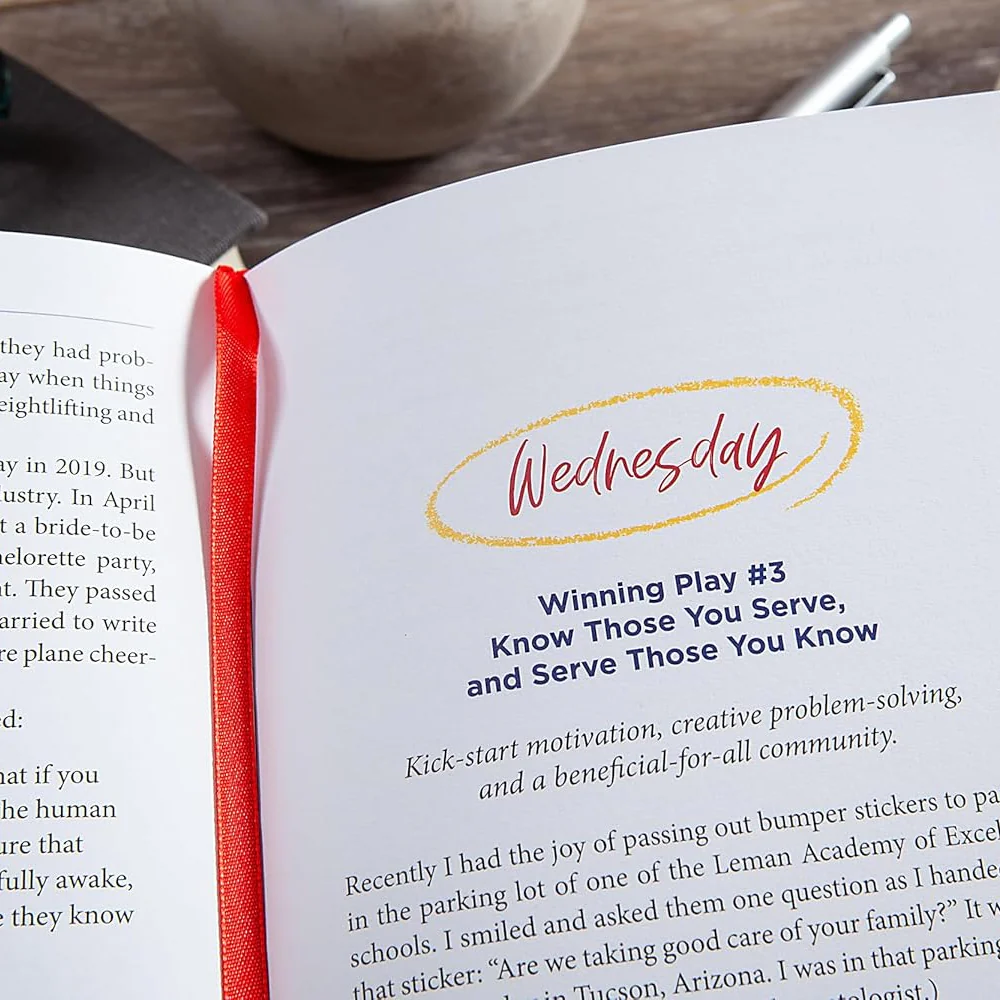 they had prob-
ay when things
eightlifting and
ay in 2019. But
dustry. In April
t a bride-to-be
helorette party,
nt. They passed
arried to write
re plane cheer-
ed:
hat if you
he human
ure that
fully awake,
e they know
Wednesday
Winning Play #3
Know Those You Serve,
and Serve Those You Know
Kick-start motivation, creative problem-solving,
and a beneficial-for-all community.
Recently I had the joy of passing out bumper stickers to pa
in the parking lot of one of the Leman Academy of Excel
schools. I smiled and asked them one question as I hande
that sticker: “Are we taking good care of your family?” It w
in Tucson, Arizona. I was in that parking
atologist.)